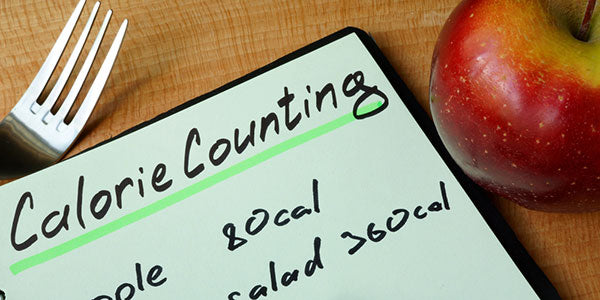 Calorie Counting
80cal
salad 360cal